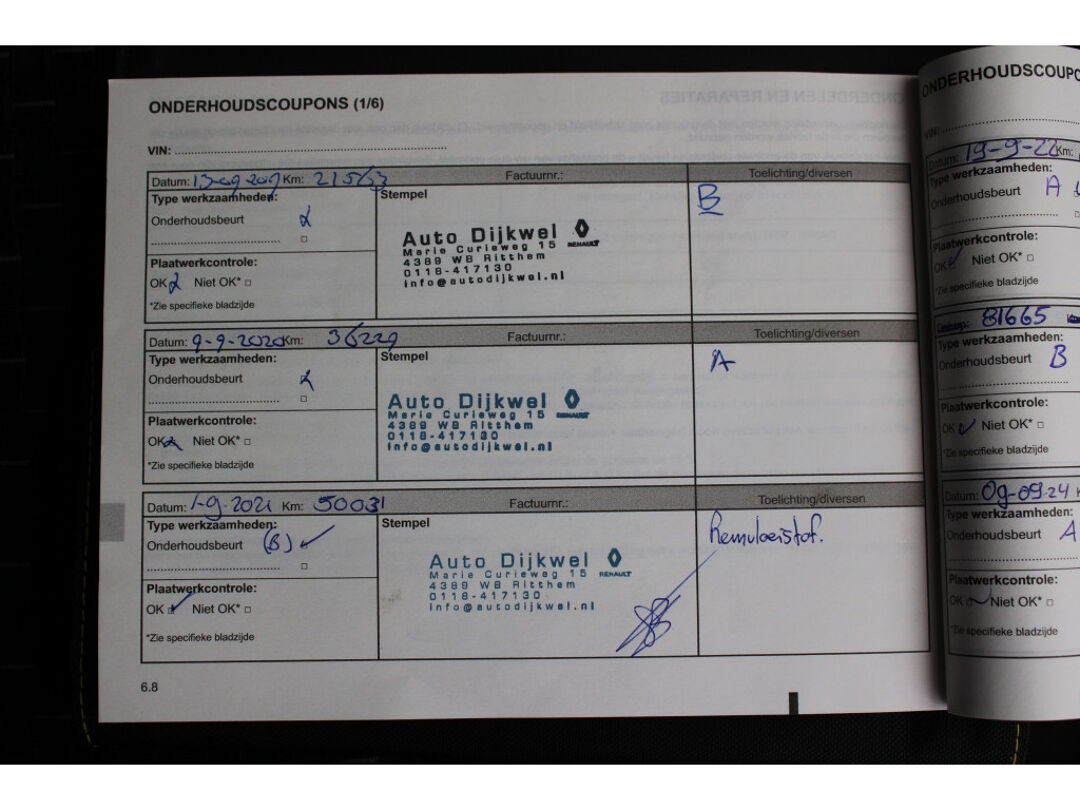 ONDERHOUDSCOUPONS (1/6)
VIN:
Datum: 13-09-2019 Km: 21563 Factuurnr.: Toelichting/diversen
Type werkzaamheden:
Stempel
B
Onderhoudsbeurt
Auto Dijkwel
RENAULT
Marie Curieweg 15
4389 WB Ritthem
0118-417130
info@autodijkwel.nl
Plaatwerkcontrole:
OK Niet OK*
*Zie specifieke bladzijde
Datum: 9-9-2020 Km: 36229 Factuurnr.: Toelichting/diversen
Type werkzaamheden:
Stempel
A
Onderhoudsbeurt
Auto Dijkwel
RENAULT
Marie Curieweg 15
4389 WB Ritthem
0118-417130
info@autodijkwel.nl
Plaatwerkcontrole:
OK Niet OK*
*Zie specifieke bladzijde
Datum: 1-9-2021 Km: 50031 Factuurnr.: Toelichting/diversen
Type werkzaamheden:
Stempel
Remvloeistof.
Onderhoudsbeurt (B)
Auto Dijkwel
RENAULT
Marie Curieweg 15
4389 WB Ritthem
0118-417130
info@autodijkwel.nl
Plaatwerkcontrole:
OK Niet OK*
*Zie specifieke bladzijde
6.8
ONDERHOUDSCOUPO
VIN:
Datum: 19-9-22 Km:
Type werkzaamheden:
Onderhoudsbeurt A
Plaatwerkcontrole:
OK Niet OK*
*Zie specifieke bladzijde
81665
Type werkzaamheden:
Onderhoudsbeurt B
Plaatwerkcontrole:
OK Niet OK*
*Zie specifieke bladzijde
Datum: 09-09-24
Type werkzaamheden:
Onderhoudsbeurt A
Plaatwerkcontrole:
OK Niet OK*
*Zie specifieke bladzijde